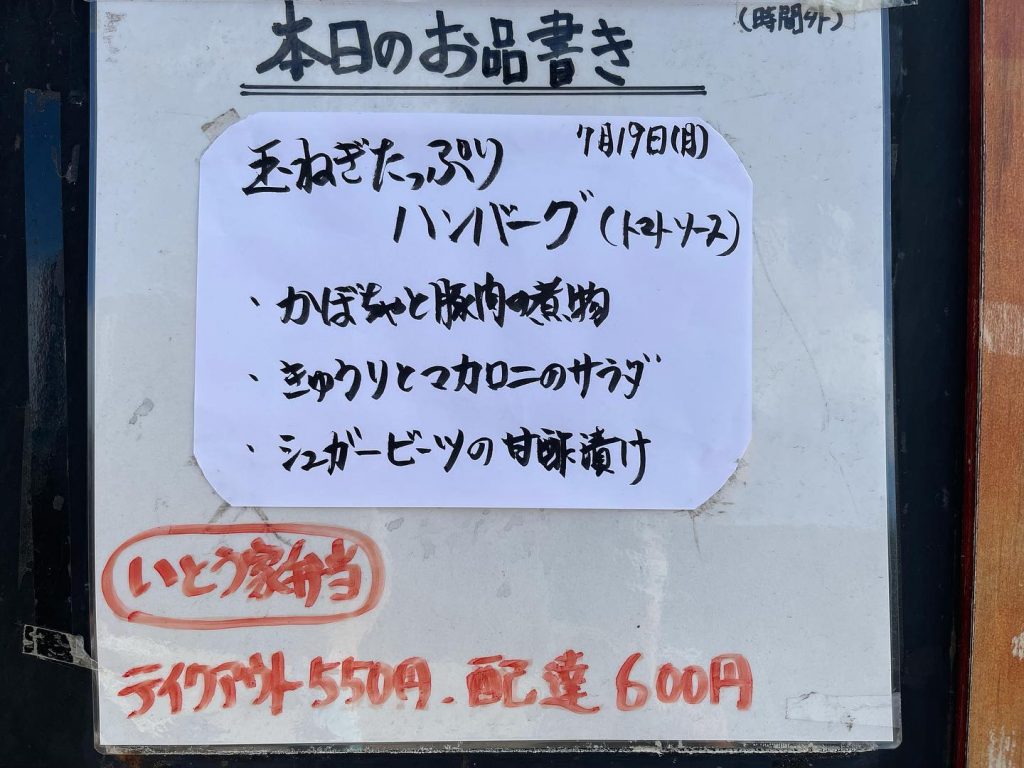 (時間外)
本日のお品書き
7月19日(月)
玉ねぎたっぷり
ハンバーグ(トマトソース)
・かぼちゃと豚肉の煮物
・きゅうりとマカロニのサラダ
・シュガービーツの甘酢漬け
いとう家弁当
テイクアウト550円.配達600円